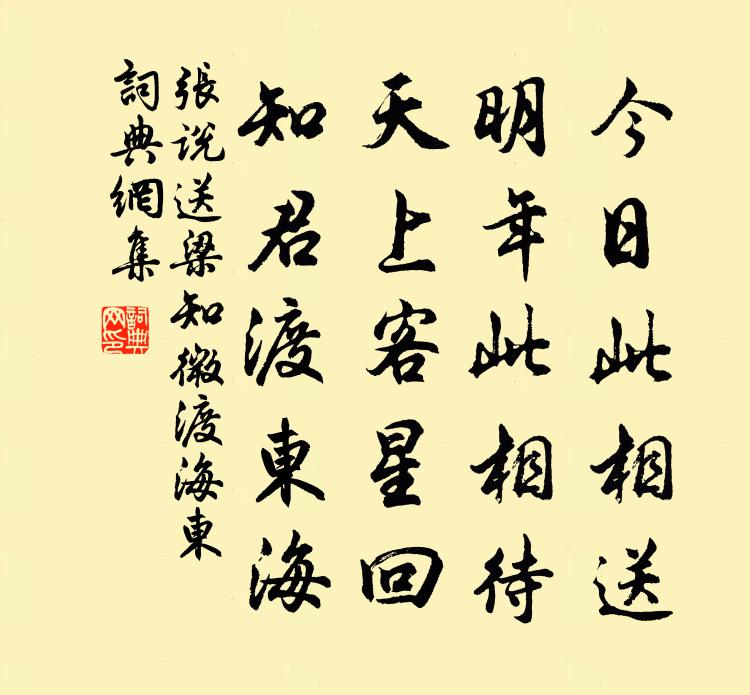 今日此相送
明年此相待
天上客星回
知君渡東海
張説送梁知微渡海東
詞典網集
詞典网印